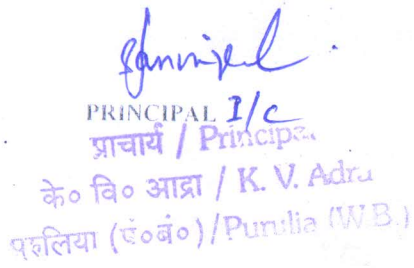 PRINCIPAL I/C
प्राचार्य / Principal
के० वि० आद्रा / K. V. Adra
पुरुलिया (पं०बं०)/Purulia (W.B.)